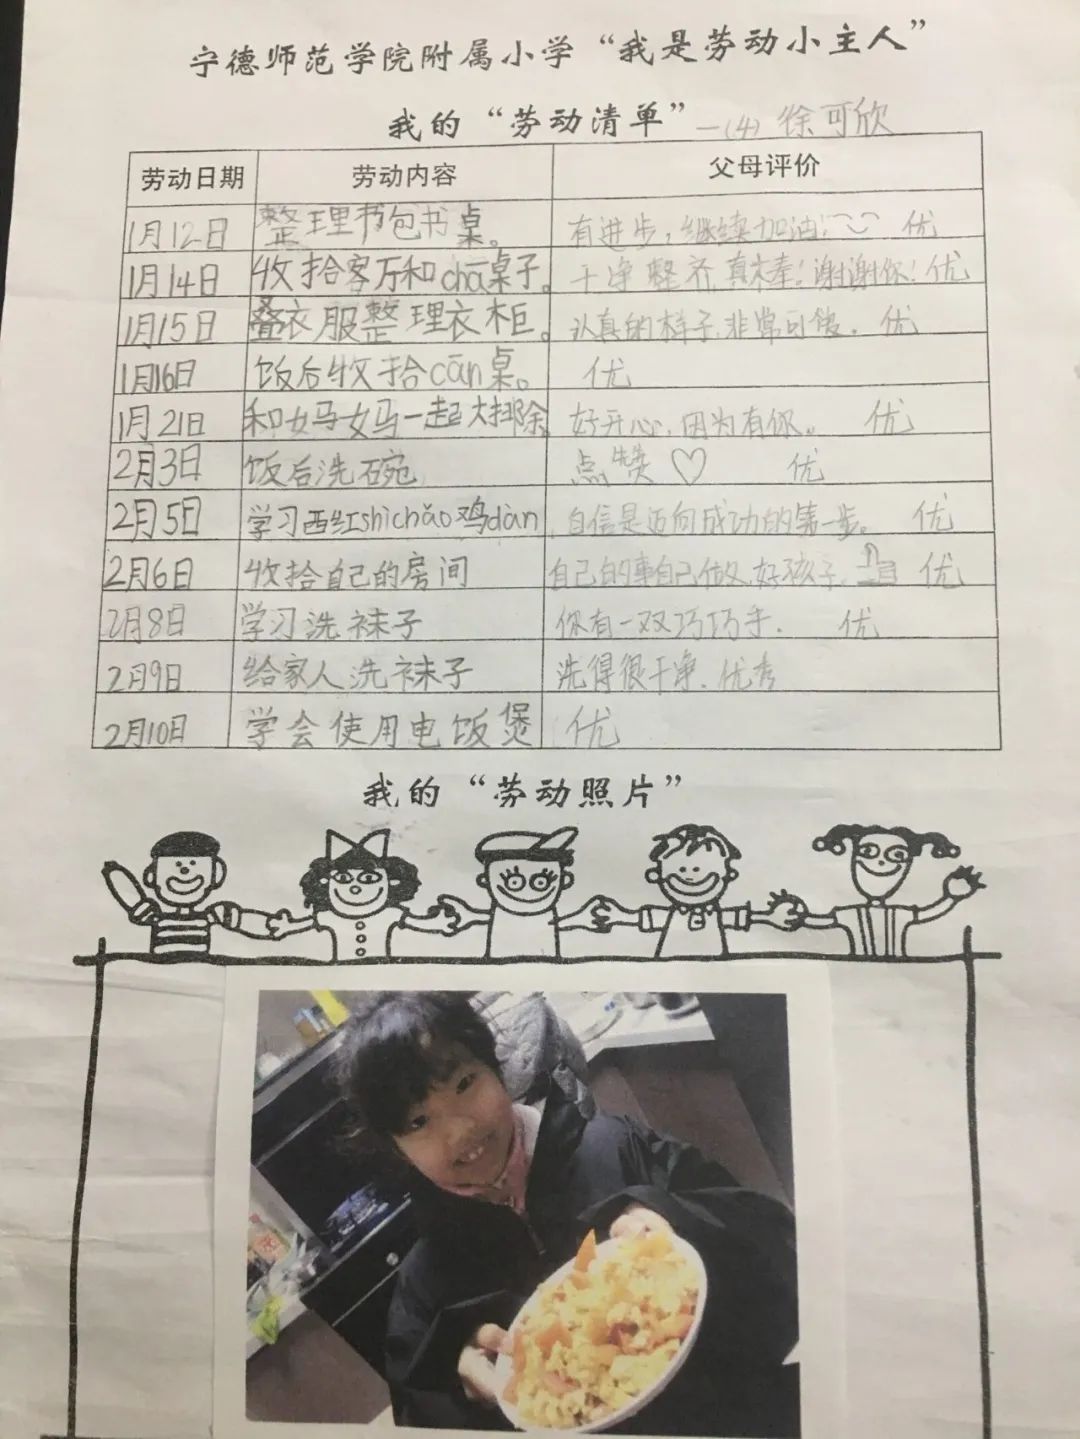 宁德师范学院附属小学“我是劳动小主人”
我的“劳动清单” 一(4) 徐可欣
劳动日期 劳动内容 父母评价
1月12日 整理书包书桌。 有进步,继续加油! 优
1月14日 收拾客万和chā桌子。 干净整齐,真棒!谢谢你!优
1月15日 叠衣服整理衣柜。 认真的样子,非常可爱。优
1月16日 饭后收拾cān桌。 优
1月21日 和妈妈一起大扫除 好开心,因为有你。 优
2月3日 饭后洗碗 点赞♡ 优
2月5日 学习西红shìchǎo鸡dàn 自信是迈向成功的第一步。 优
2月6日 收拾自己的房间 自己的事自己做,好孩子, 优
2月8日 学习洗袜子 你有一双巧巧手. 优
2月9日 给家人洗袜子 洗得很干净.优秀
2月10日 学会使用电饭煲 优
我的“劳动照片”